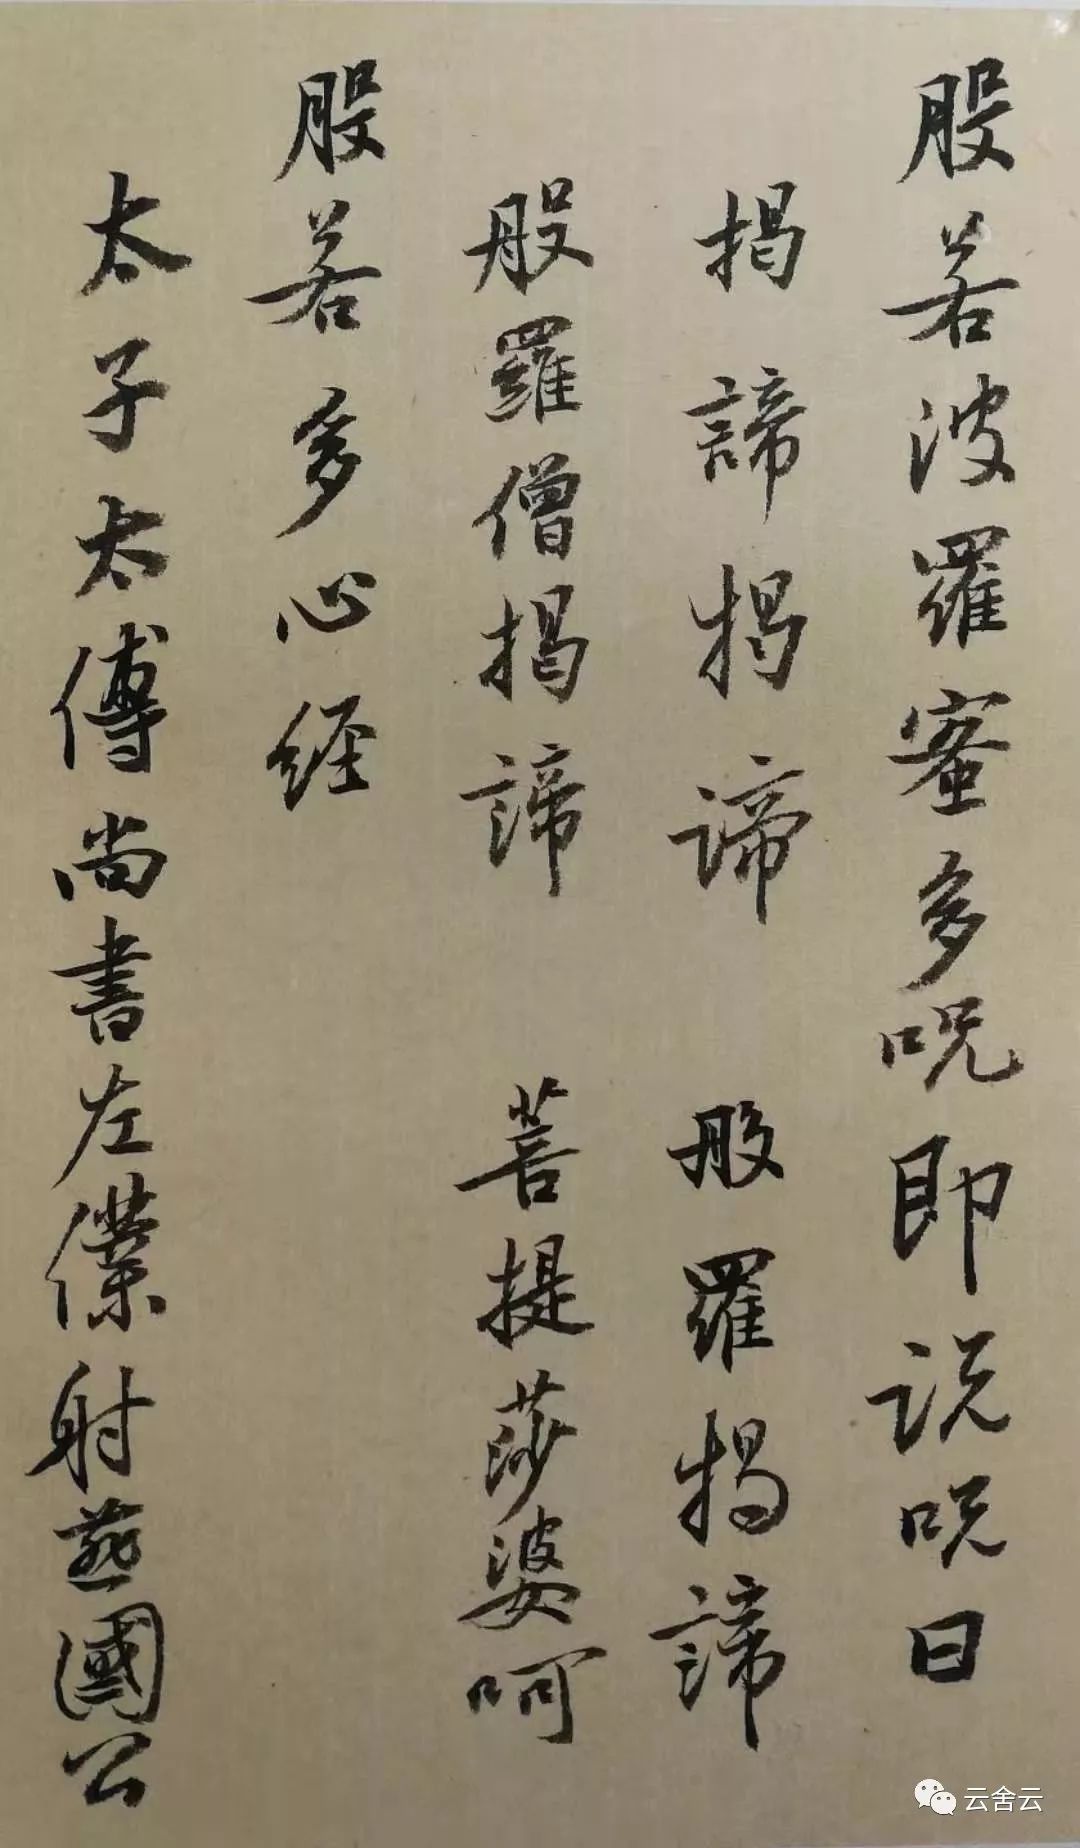 般若波羅蜜多呪即说呪曰
揭諦揭諦 般羅揭諦
般羅僧揭諦 菩提莎婆呵
般若多心经
太子太傅尚書左僕射燕國公
云舍云